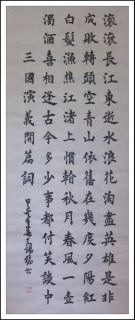 滾滾長江東逝水浪花淘盡英雄是非
成敗轉頭空青山依舊在幾度夕陽紅
白髮漁樵江渚上慣看秋月春風一壺
濁酒喜相逢古今多少事都付笑談中
三國演義開篇詞